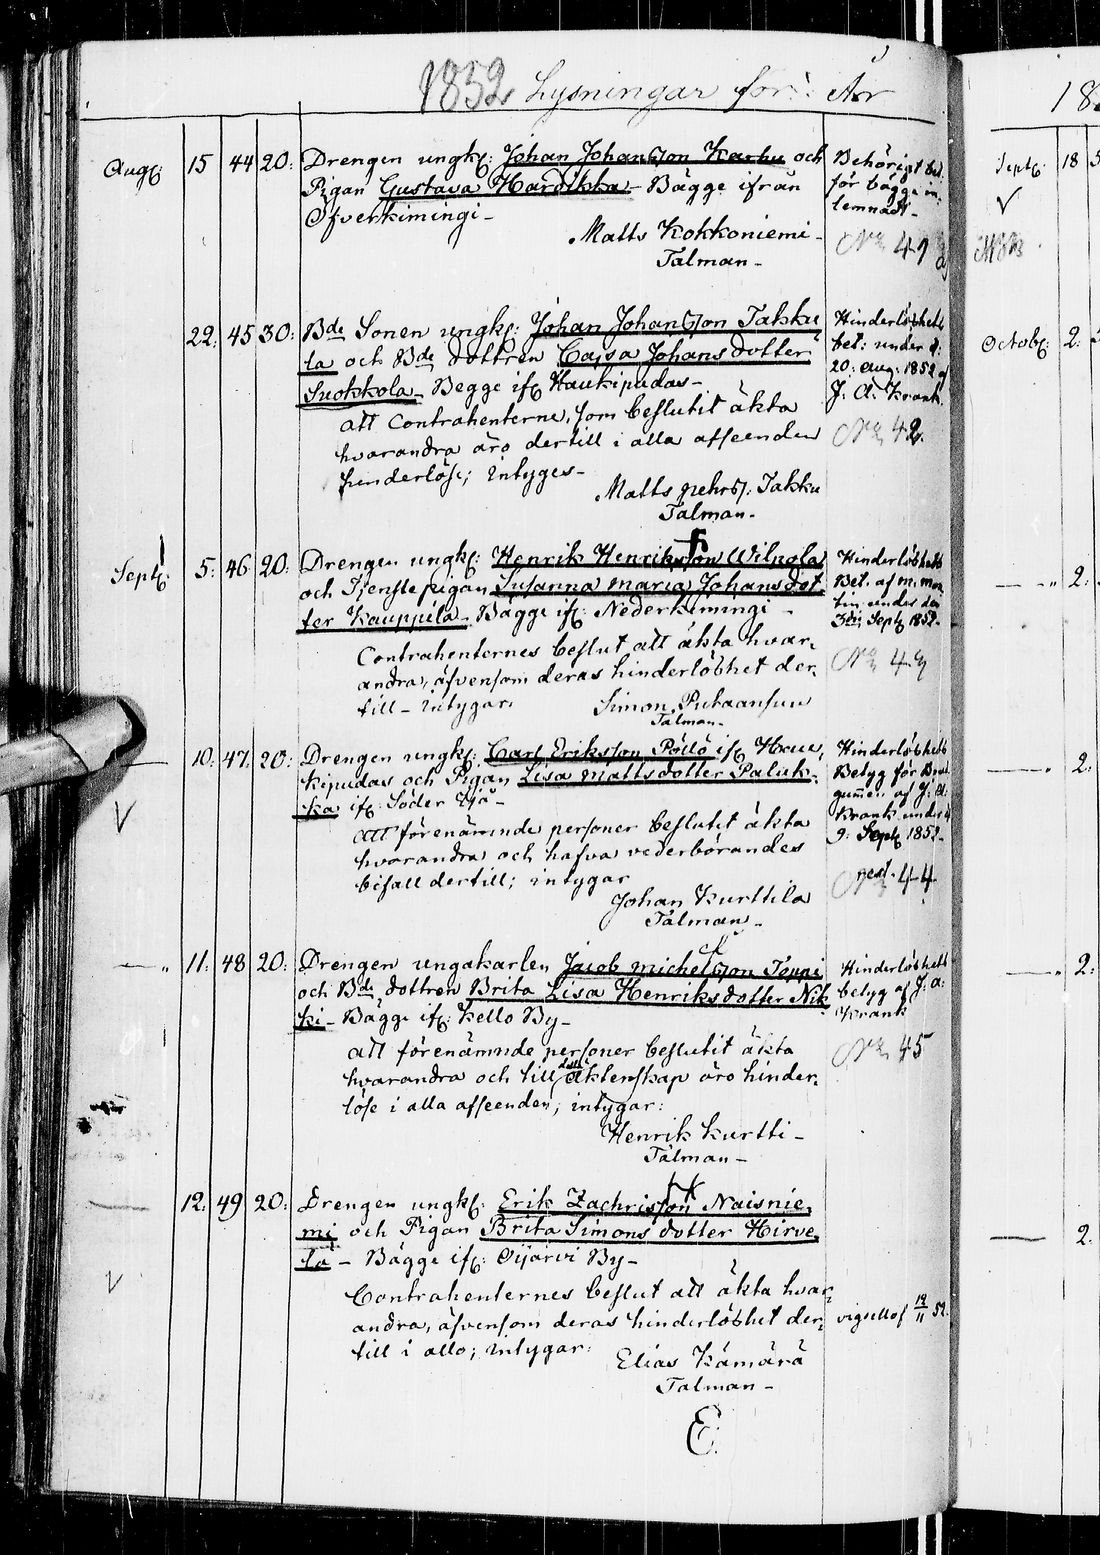 1852 Lysningar för År
Aug: 15 44 20: Drengen ungk: Johan Johansson Karhu och
Pigan Gustava Hardikka - Bägge ifrån
Öfverkimingi -
Matts Kokkoniemi -
Talman -
Behörigt bet.
för bägge in-
lemnadt -
No 41
22: 45 30: Bde Sonen ungk: Johan Johansson Takku
la och Bde dottren Cajsa Johansdotter
Suokkola - Begge if: Haukipudas -
att Contrahenterne, som beslutit äkta
hvarandra äro dertill i alla afseenden
hinderlöse; intyges -
Matts Pehrs. Takku
Talman -
Hinderlöshets
bet: under d:
20: aug: 1852 af
J. A. Krank.
No 42.
Sept: 5: 46 20: Drengen ungk: Henrik Henriksson Wilpola
och Tjenstepigan Susanna Maria Johansdot-
ter Kauppila - Bägge if: Nederkimingi -
Contrahenternes beslut att äkta hvar-
andra, äfvensom deras hinderlöshet der-
till - intygar.
Simon Putaansuu
Talman -
Hinderlöshets
Bet. af
under den
3die Sept 1852 -
No 43
10: 47. 20: Drengen ungk: Carl Eriksson Pöllö if: Hau-
kipudas och Pigan Lisa Mattsdotter Paluk-
ka if: Söder Ijå -
att förenämnde personer beslutit äkta
hvarandra och hafva vederbörandes
bifall dertill; intygar
Johan Kurttila
Talman -
Hinderlöshets
Betyg för Brud-
gummen af J: A:
Krank under d
9: Sept 1852 -
No 44
11: 48 20: Drengen ungakarlen Jacob Michelsson Toppi
och Bde dottren Brita Lisa Henriksdotter Nik
ki - Bägge if: Kello By -
att förenämnde personer beslutit äkta
hvarandra och till detta äktenskap äro hinder-
löse i alla afseenden; intygar:
Henrik Kurtti -
Talman -
Hinderlöshets
betyg af J: A:
Krank
No 45
12: 49 20: Drengen ungk: Erik Zachrisson Naisnie-
mi och Pigan Brita Simonsdotter Hirve-
lä - Bägge if: Oijärvi By -
Contrahenternes beslut att äkta hvar-
andra, äfvensom deras hinderlöshet der-
till i allo; intygar:
Elias Kämärä
Talman -
vigsellof 12/11 52.
18
Sept: 18
Octob: 2:
2:
2:
2:
2: